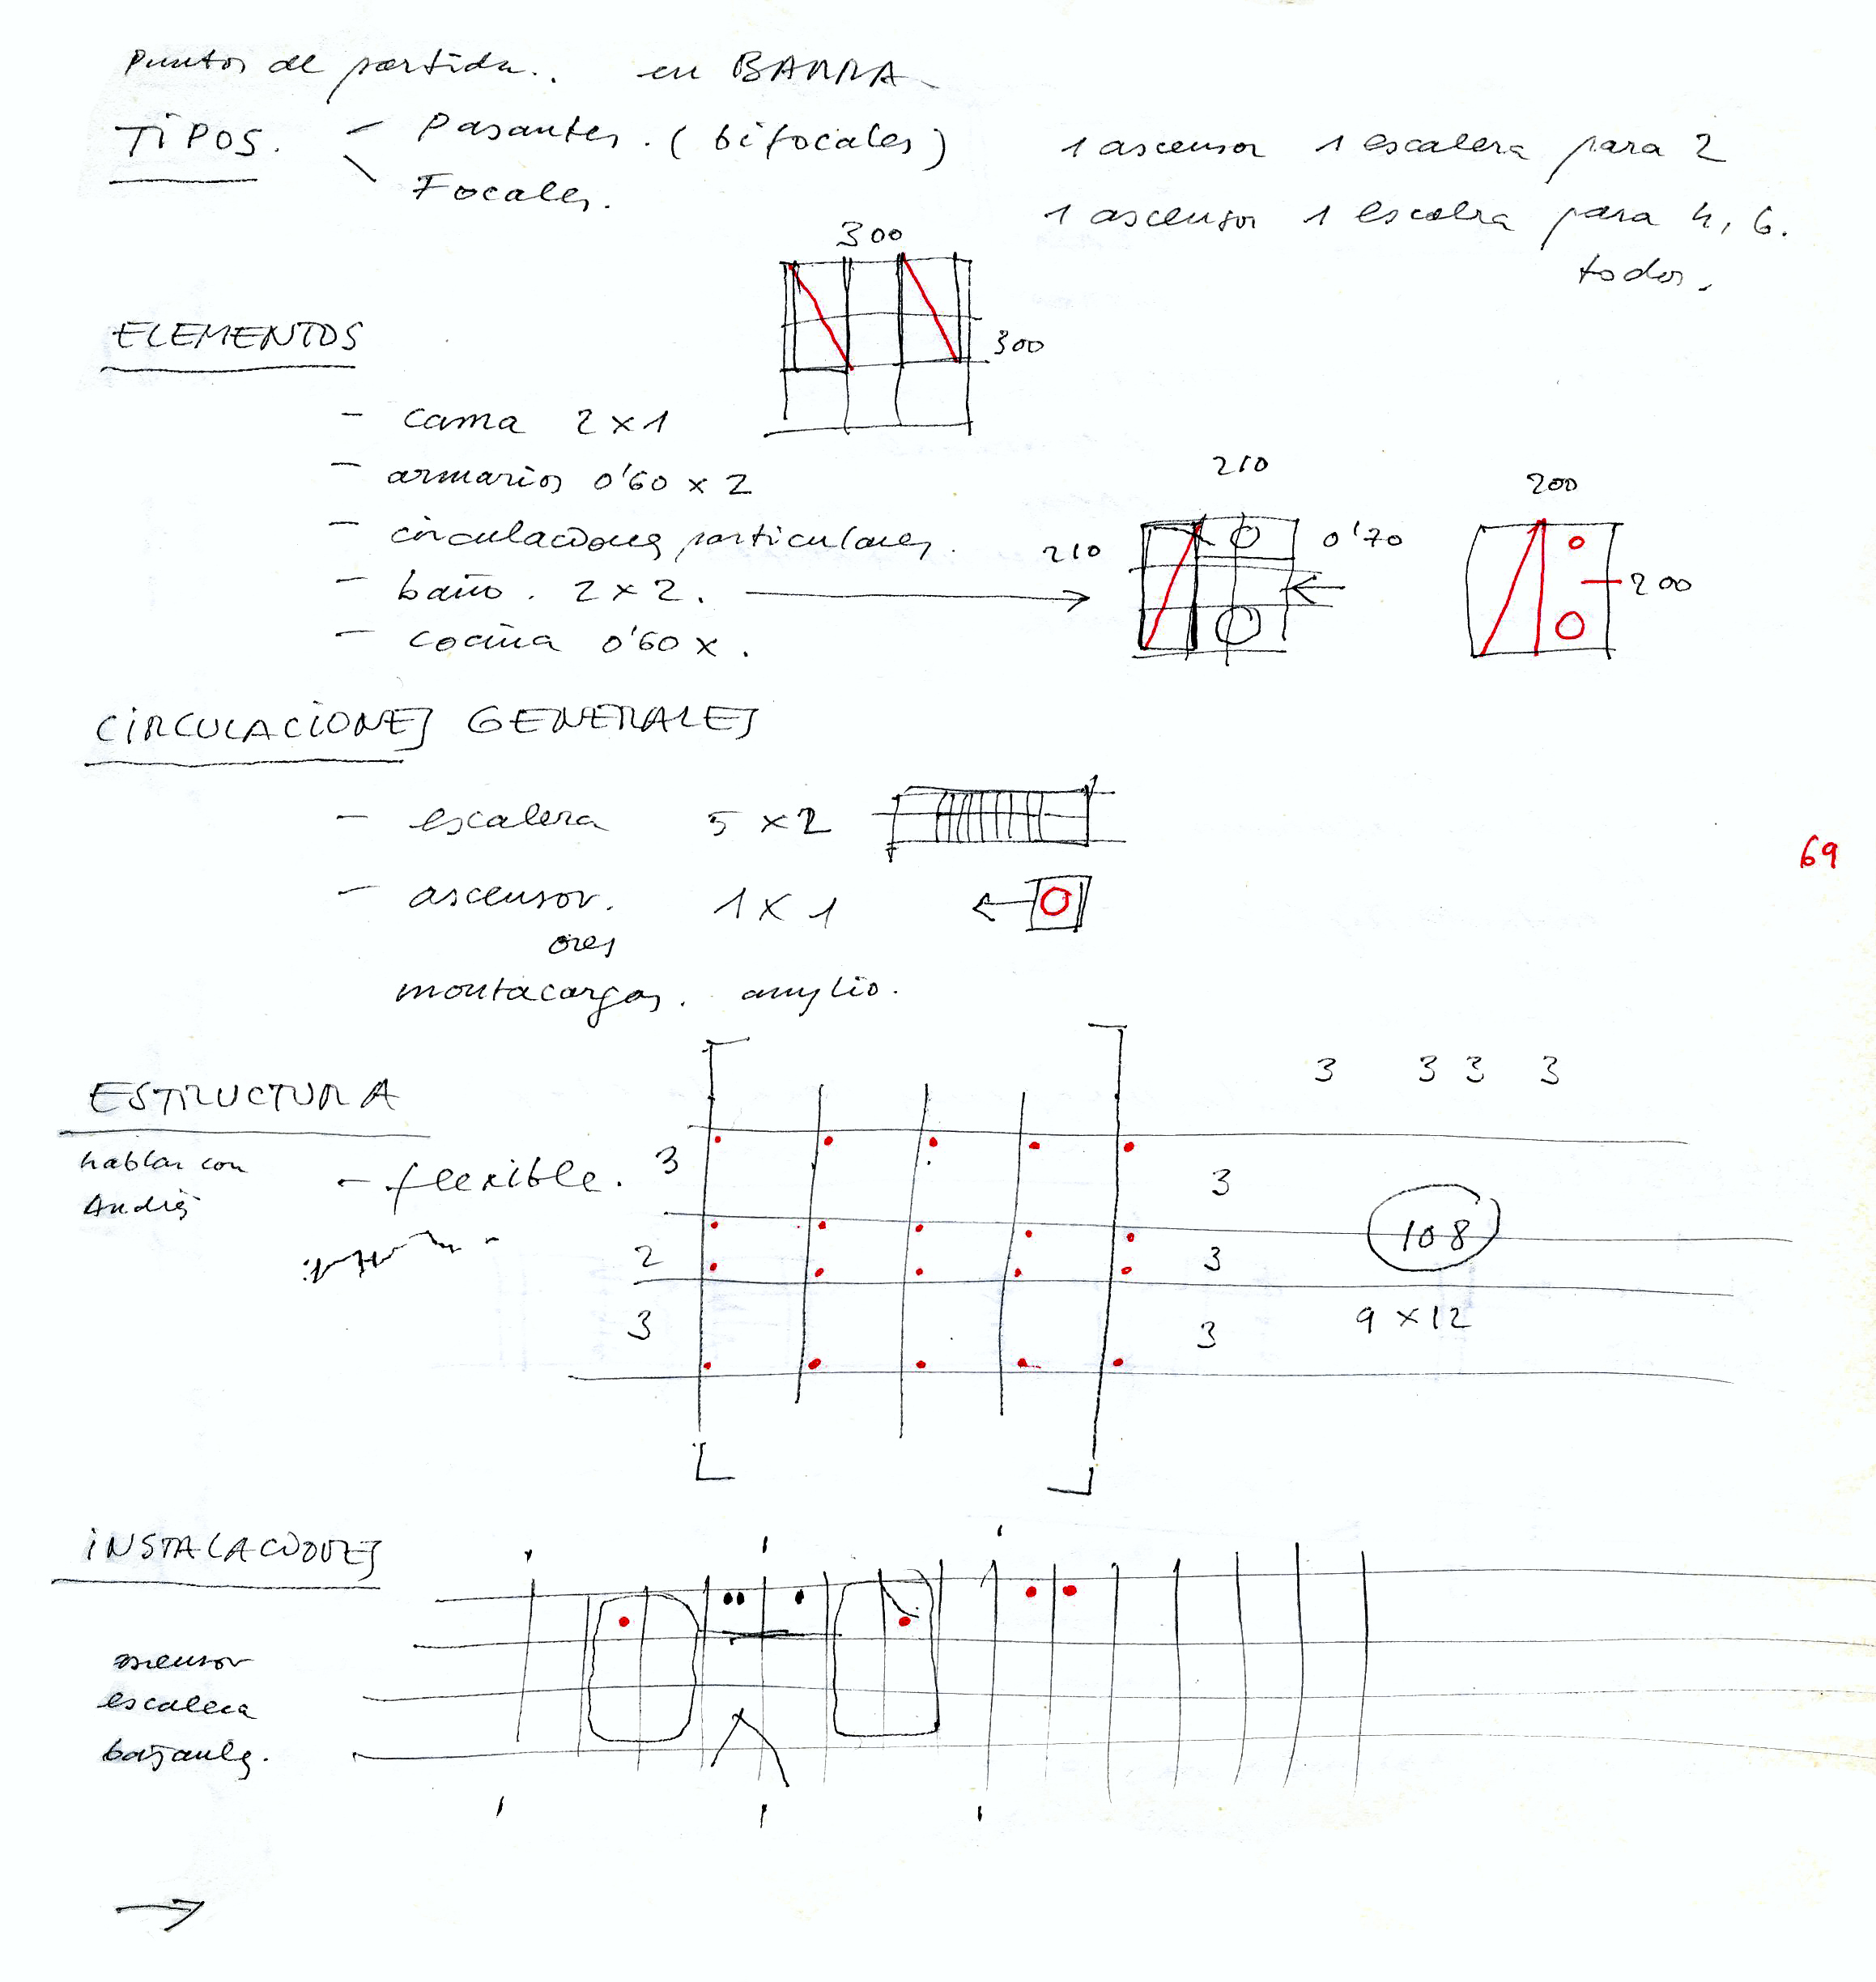 Puntos de partida.. en BARRA
TIPOS. - Pasantes. (bifocales) 1 ascensor 1 escalera para 2
Focales. 1 ascensor 1 escalera para 4, 6.
todos.
300
300
ELEMENTOS
- cama 2 x 1
- armarios 0'60 x 2
- circulaciones particulares.
- baño. 2 x 2.
- cocina 0'60 x .
210
210
0'70
200
200
CIRCULACIONES GENERALES
- escalera 5 x 2
- ascensor. 1 x 1
ores
montacargas. amplio.
69
ESTRUCTURA
hablar con
Andrés
- flexible.
3 3 3 3
3
2
3
3
3
3
108
9 x 12
INSTALACIONES
ascensor
escalera
bajantes.